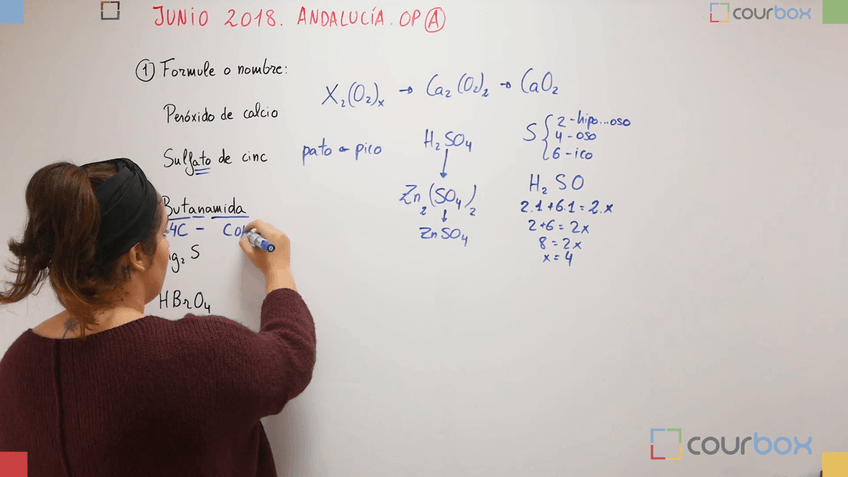 JUNIO 2018. ANDALUCÍA. OP A
courbox
1 Formule o nombre:
Peróxido de calcio
Sulfato de cinc
Butanamida
4C - Co
g₂ S
HBrO₄
X₂(O₂)ₓ → Ca₂(O₂)₂ → CaO₂
pato → pico
H₂SO₄
↓
Zn₂(SO₄)₂
↓
ZnSO₄
S { 2 - hipo...oso
4 - oso
6 - ico
H₂ SO
2.1+6.1=2.x
2+6=2x
8=2x
x=4
courbox